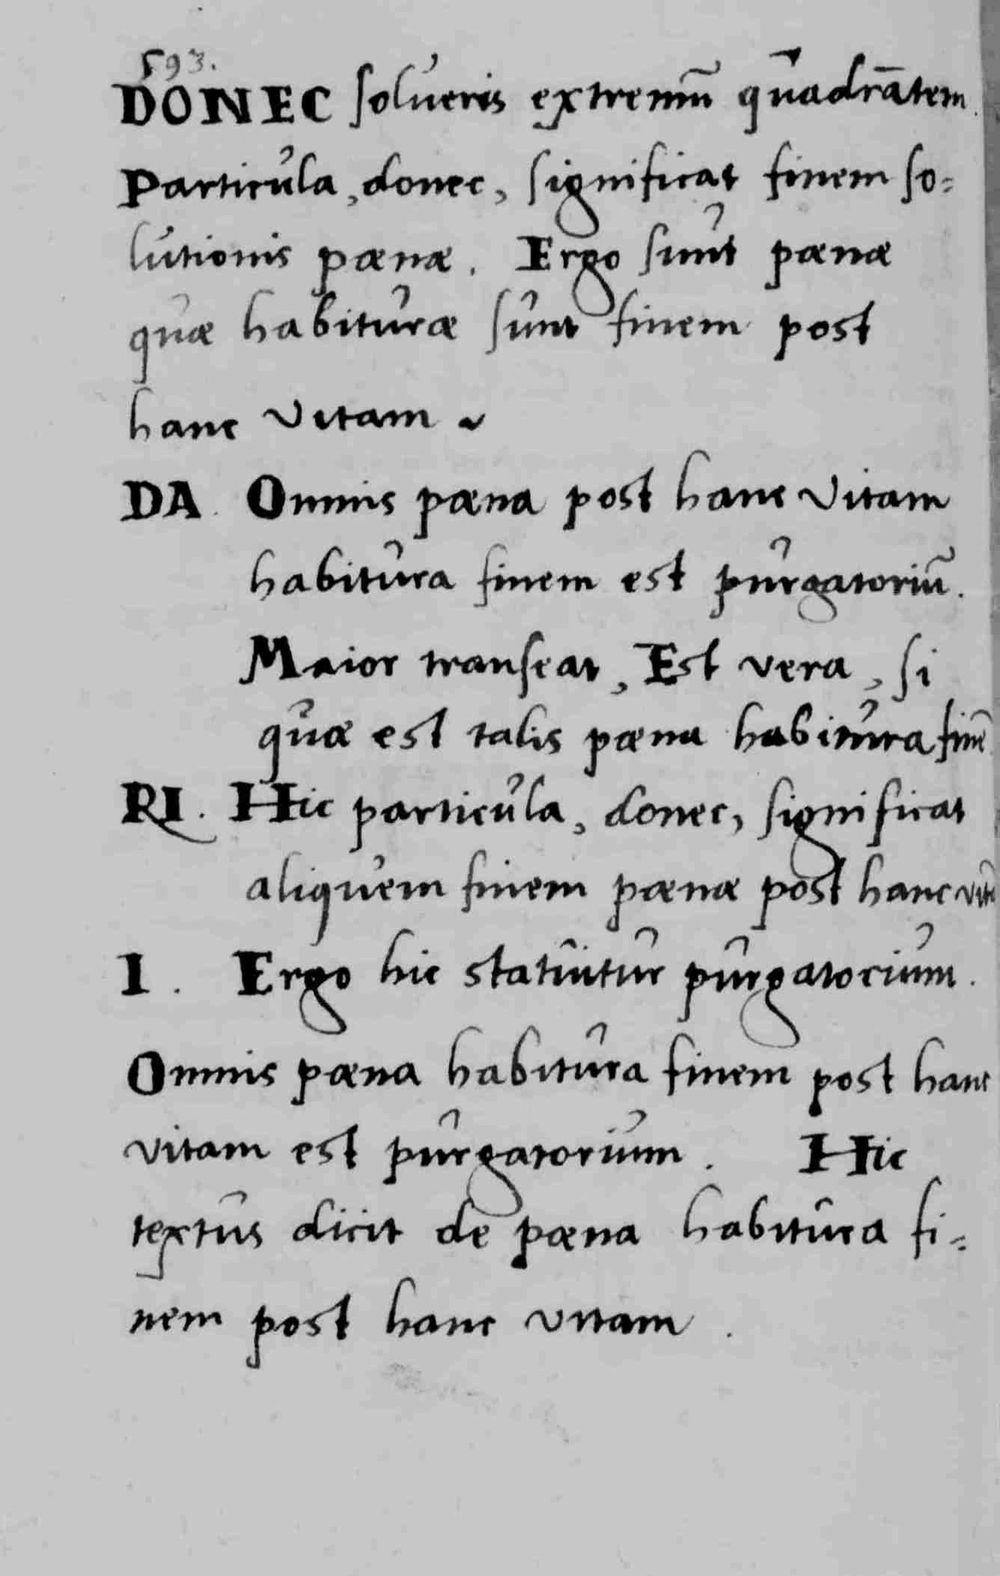 593.
DONEC solueris extremū quadrātem.
Particula, donec, significat finem so=
lutionis pœnæ. Ergo sunt pœnæ
quæ habituræ sunt finem post
hanc vitam
DA. Omnis pœna post hanc vitam
habitura finem est purgatoriū.
Maior transeat, Est vera, si
quæ est talis pœna habitura finē
RI. Hic particula, donec, significat
aliquem finem pœnæ post hanc
I. Ergo hic statuitur purgatorium.
Omnis pœna habitura finem post hanc
vitam est purgatorium. Hic
textus dicit de pœna habitura fi=
nem post hanc vitam.